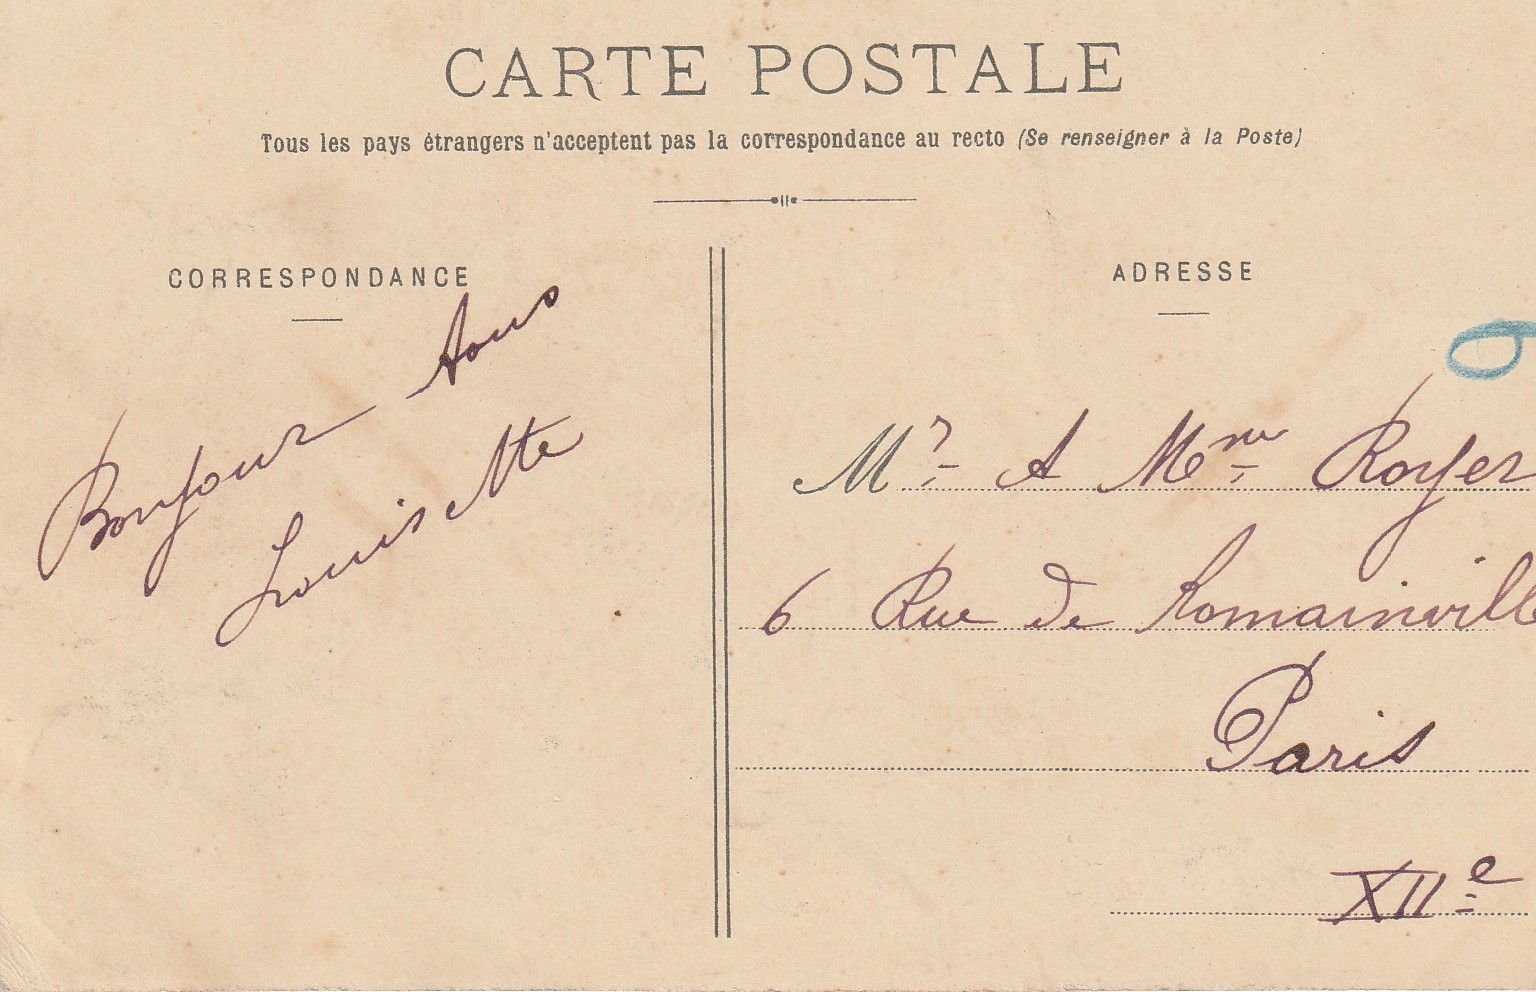 CARTE POSTALE
Tous les pays étrangers n'acceptent pas la correspondance au recto (Se renseigner à la Poste)
CORRESPONDANCE
Bonjour à tous
Louisette
ADRESSE
9
Mr A Mme Royer
6 Rue de Romainville
Paris
XIIe